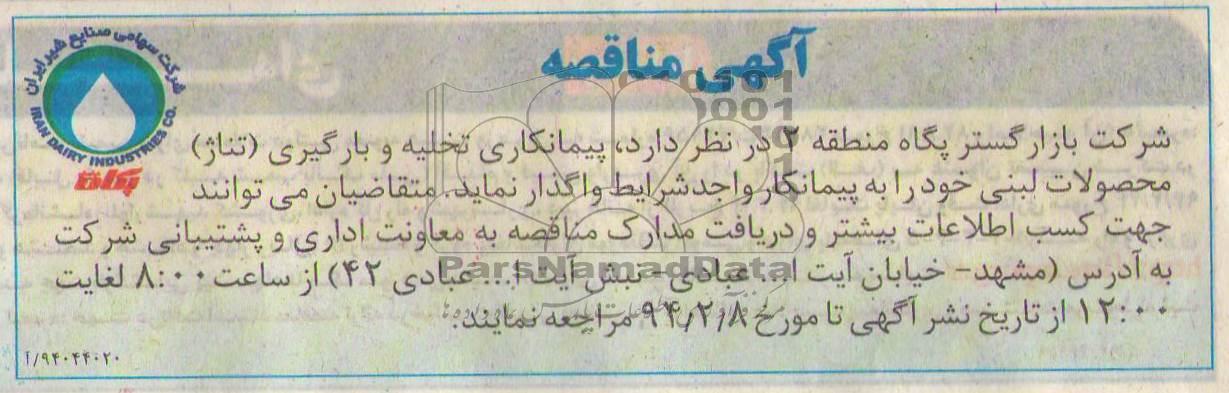 آگهی مناقصه
شرکت سهامی صنایع شیر ایران
IRAN DAIRY INDUSTRIES CO.
پگاه
شرکت بازار گستر پگاه منطقه ۲ در نظر دارد، پیمانکاری تخلیه و بارگیری (تناژ)
محصولات لبنی خود را به پیمانکار واجد شرایط واگذار نماید. متقاضیان می توانند
جهت کسب اطلاعات بیشتر و دریافت مدارک مناقصه به معاونت اداری و پشتیبانی شرکت
به آدرس (مشهد- خیابان آیت ا... عبادی- نبش آیت ا... عبادی ۴۲) از ساعت ۸:۰۰ لغایت
۱۲:۰۰ از تاریخ نشر آگهی تا مورخ ۹۴/۲/۸ مراجعه نمایند.
۹۴۰۴۴۰۲۰/آ
ParsNamadData